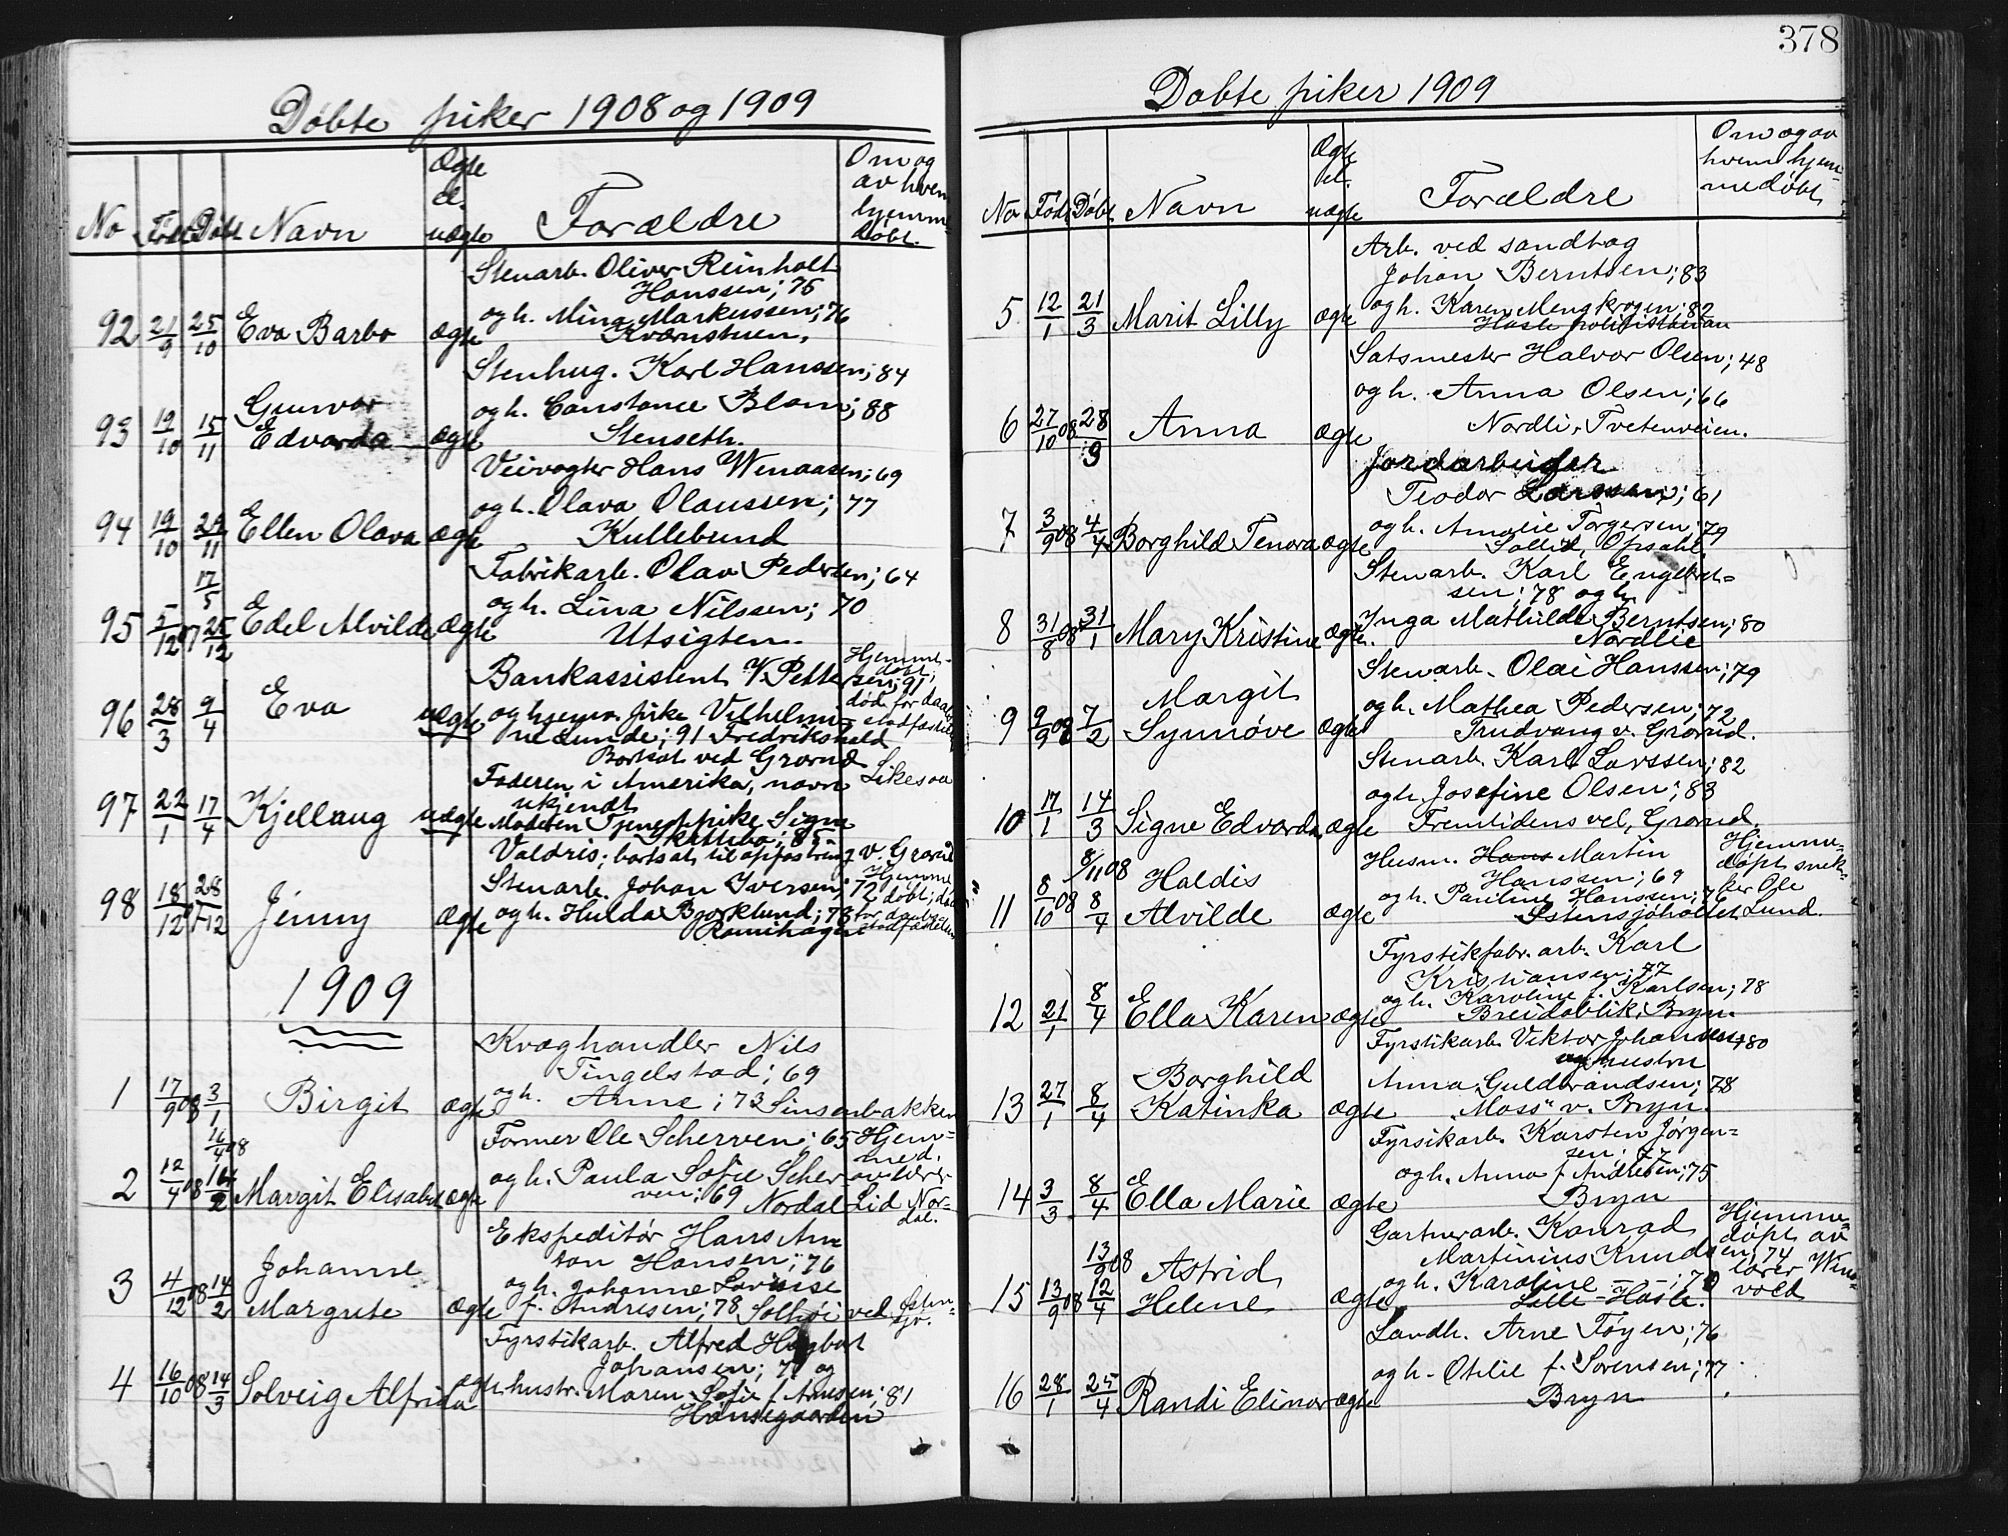 378
Døbte piker 1908 og 1909
No Født Døbt Navn Ægte el. uægte Forældre Om og av hvem hjemmedøbt.
92 21/9 25/10 Eva Barbo ægte Stenarb. Oliver Reinholt
Hanssen; 75
og h. Mina Markussen; 76
Kværnstuen.
93 19/10 15/11 Gunvor Edvarda ægte Stenhug. Karl Hanssen; 84
og h. Constance Blom; 88
Stenseth.
94 19/10 29/11 Ellen Olava ægte Veivogter Hans Wenaasen; 69
og h. Olava Olaussen; 77
Kullebund
17/5
95 5/12 07 25/12 Edel Alvilde ægte Fabrikarb. Olav Pedersen; 64
og h. Lina Nilssen; 70
Utsigten.
96 28/3 9/4 Eva uægte Bankassistent V. Pettersen; 91
og hjemv. pike Vilhelmine Lunde; 91 Fredrikshald
Bortsat ved Grorud
Hjemmedøbt; død før daabens stadfæstelse
97 22/1 17/4 Kjellaug uægte Faderen i Amerika, navn
ukjendt
Moderen Tjenestpike Signe
Valdris; bortsat til opfostring v. Grorud
Likesaa
98 18/12 28/12 Jenny ægte Stenarb. Johan Iversen; 72
og h. Hulda Bjørklund; 78
Hjemmedøbt; død før daabens stadfæstelse
1909
1 17/9 08 3/1 Birgit ægte Kvæghandler Nils
Tingelstad; 69
og h. Anne; 73 Sinsenbakken
16/4 08
2 12/4 08 14/2 Margit Elisabet ægte Former Ole Scherven; 65
og h. Paula Sofie Scherven; 69 Nordal
Hjemmed. av lærer Lid Nordal.
3 4/12 08 14/2 Johanne Margrete ægte Ekspeditør Hans Anton Hansen; 76
og h. Johanne Lovisse
f. Andresen; 78 Solhøi ved Østensjø.
4 16/10 08 14/3 Solveig Alfrida ægte Fyrstikarb. Alfred Hagbart
Johansen; 7 og
hustr. Maren Sofie f. Arnesen; 81
Hønsegaarden
Døbte piker 1909
No Født Døbt Navn Ægte el. uægte Forældre Om og av hvem hjemmedøbt
5 12/1 21/3 Marit Lilly ægte Arb. ved sandtag
Johan Berntsen; 83
og h. Karen Mengkrogen; 82
Hasle politistation
6 27/10 08 28/3 Anna ægte Satsmester Halvor Olsen; 48
og h. Anna Olsen; 66
Nordli, Tvetenveien.
7 3/9 08 4/4 Borghild Tenora ægte Jordarbeider
Teodor Larssen; 61
og h. Amalie Torgersen; 79
Sollid, Opsahl
8 31/8 08 31/1 Mary Kristine ægte Stenarb. Karl Engebretsen; 78 og h.
Inga Mathilde Berntsen; 80
Nordlie
9 9/9 08 7/2 Margit Synnøve ægte Stenarb. Olai Hanssen; 79
og h. Mathea Pedersen; 72
Trudvang v. Grorud.
10 17/1 14/3 Signe Edvarda ægte Stenarb. Karl Larssen; 82
og h. Josefine Olsen; 83
Fremtidens vel, Grorud.
8/11 08
11 8/10 08 8/4 Haldis Alvilde ægte Husm. Hans Martin
Hanssen; 69
og h. Pauline Hanssen; 76
Østensjøholtet
Hjemmedøpt snekker Ole Lund.
12 21/1 8/4 Ella Karen ægte Fyrstikfabr. arb. Karl
Kristiansen; 77
og h. Karoline f. Karlsen; 78
Breidablik, Bryn.
13 27/1 8/4 Borghild Katinka ægte Fyrstikarb. Viktor Johannesen; 80
og hustru
Anna Guldbrandsen; 78
"Moss" v. Bryn.
14 3/3 8/4 Ella Marie ægte Fyrsikarb. Karsten Jørgensen; 77
og h. Anna f. Andresen; 75
Bryn
13/9 08
15 13/9 08 12/4 Astrid Helene ægte Gartnerarb. Konrad
Martinius Knudsen; 74
og h. Karoline —"—; 70
Lille-Hasle.
Hjemmedøpt av lærer Winsvold
16 28/1 25/4 Randi Elinor ægte Landh. Arne Tøyen; 76
og h. Otilie f. Sørensen; 77
Bryn